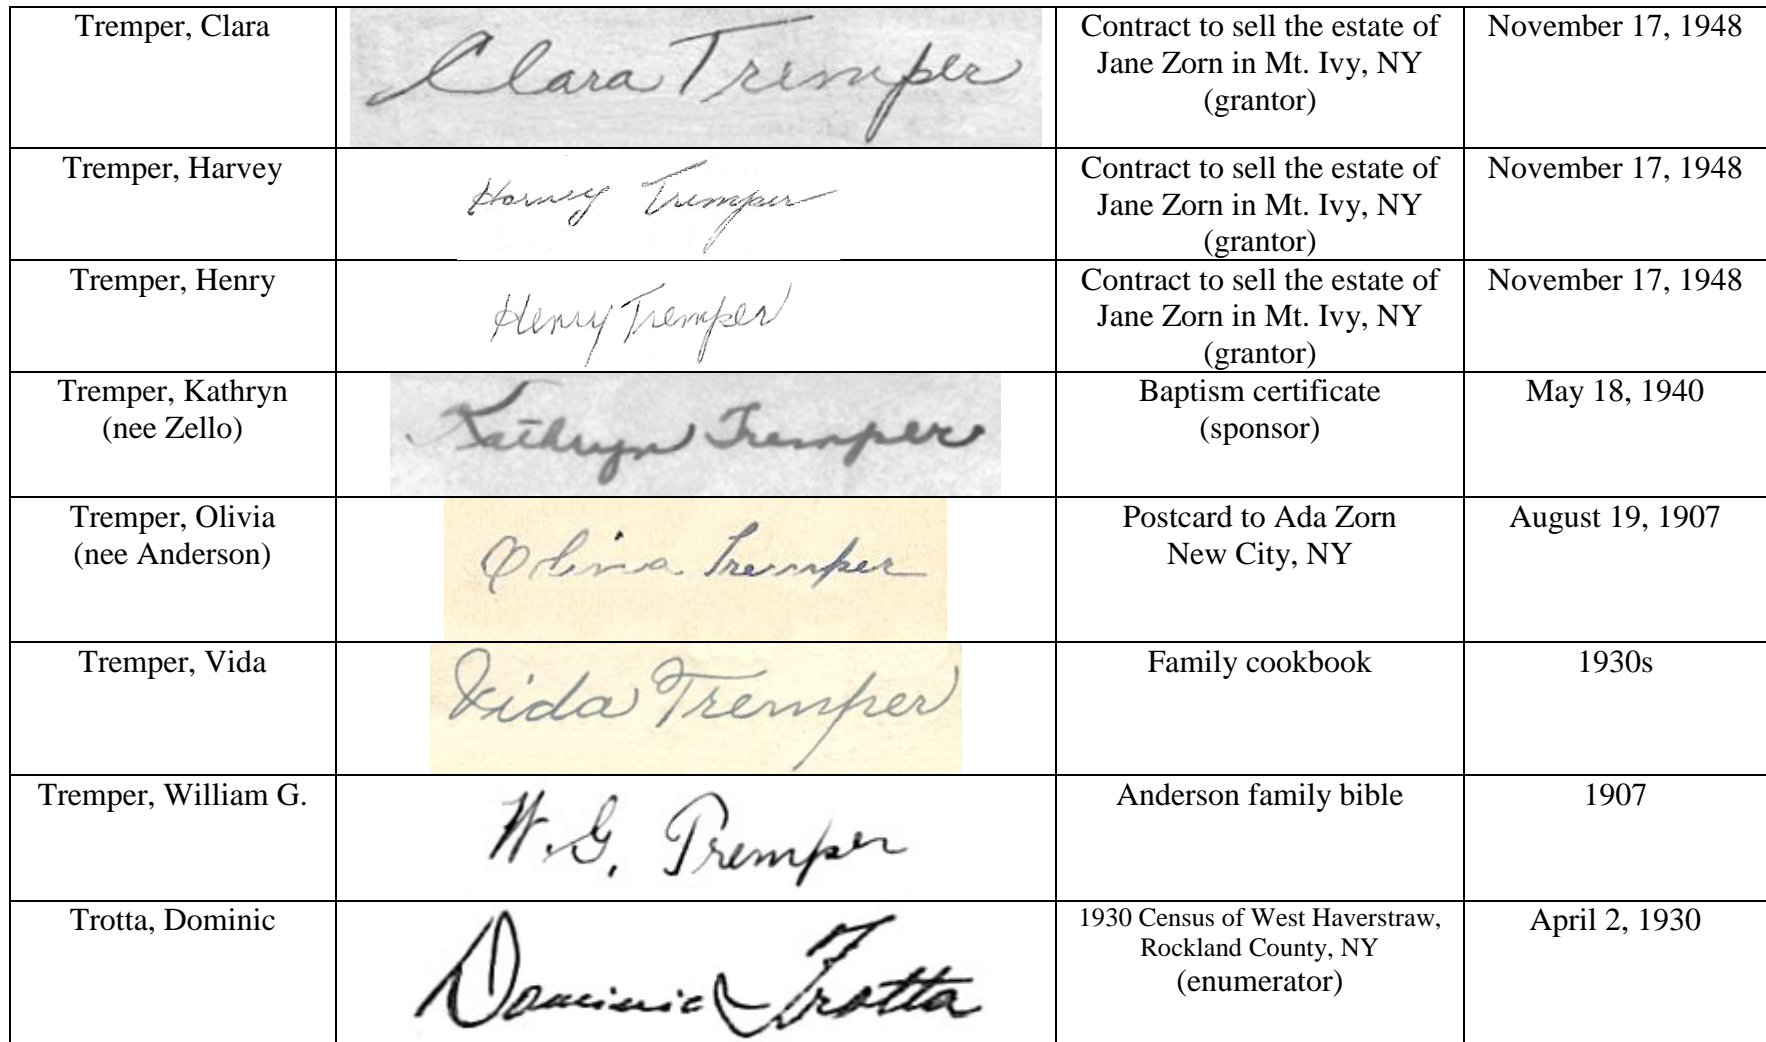 Tremper, Clara
Clara Tremper
Contract to sell the estate of
Jane Zorn in Mt. Ivy, NY
(grantor)
November 17, 1948
Tremper, Harvey
Harvey Tremper
Contract to sell the estate of
Jane Zorn in Mt. Ivy, NY
(grantor)
November 17, 1948
Tremper, Henry
Henry Tremper
Contract to sell the estate of
Jane Zorn in Mt. Ivy, NY
(grantor)
November 17, 1948
Tremper, Kathryn
(nee Zello)
Kathryn Tremper
Baptism certificate
(sponsor)
May 18, 1940
Tremper, Olivia
(nee Anderson)
Olivia Tremper
Postcard to Ada Zorn
New City, NY
August 19, 1907
Tremper, Vida
Vida Tremper
Family cookbook
1930s
Tremper, William G.
W. G. Tremper
Anderson family bible
1907
Trotta, Dominic
Dominic Trotta
1930 Census of West Haverstraw,
Rockland County, NY
(enumerator)
April 2, 1930